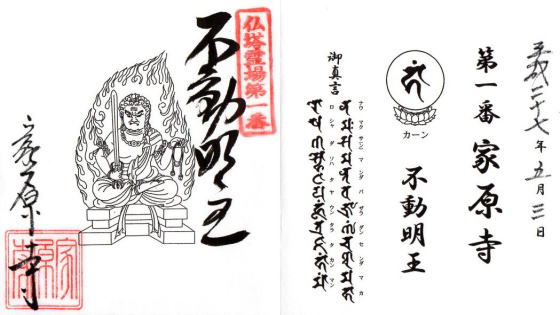 平成二十七年五月三日
第一番 家原寺
カーン
不動明王
御真言
ナウ マク サンマ ンダ バ ザラ ダン セン ダ マ カ
ロ シャ ダ ソハ タ ヤ ウン タラ タ カン マン
仏塔霊場第一番
不動明王
家原寺